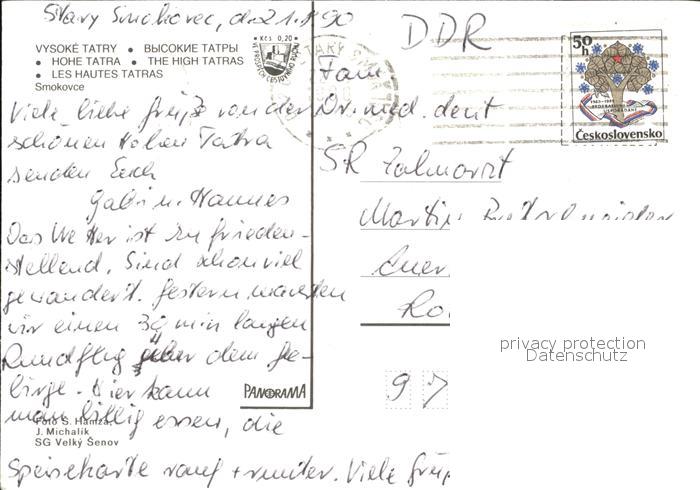 Stary Smokovec, d. 21.8.90
VYSOKÉ TATRY • ВЫСОКИЕ ТАТРЫ
• HOHE TATRA • THE HIGH TATRAS
• LES HAUTES TATRAS
Smokovce
Kčs 0,20
DDR
50 h
Československo
Viele liebe Grüße von der
schönen Hohen Tatra
senden Euch
Gabi u. Hannes
Das Wetter ist zufrieden-
stellend. Sind schon viel
gewandert. Gestern machten
wir einen 30 min langen
Rundflug über dem Ge-
birge. Hier kann
man billig essen, die
Speisekarte rauf + runter. Viele Grüße
Fam
Dr. med. dent
SR Zahnarzt
Martin
Auer
Ro
97
PANORAMA
Foto S. Hamza,
J. Michalík
SG Velký Šenov
privacy protection
Datenschutz